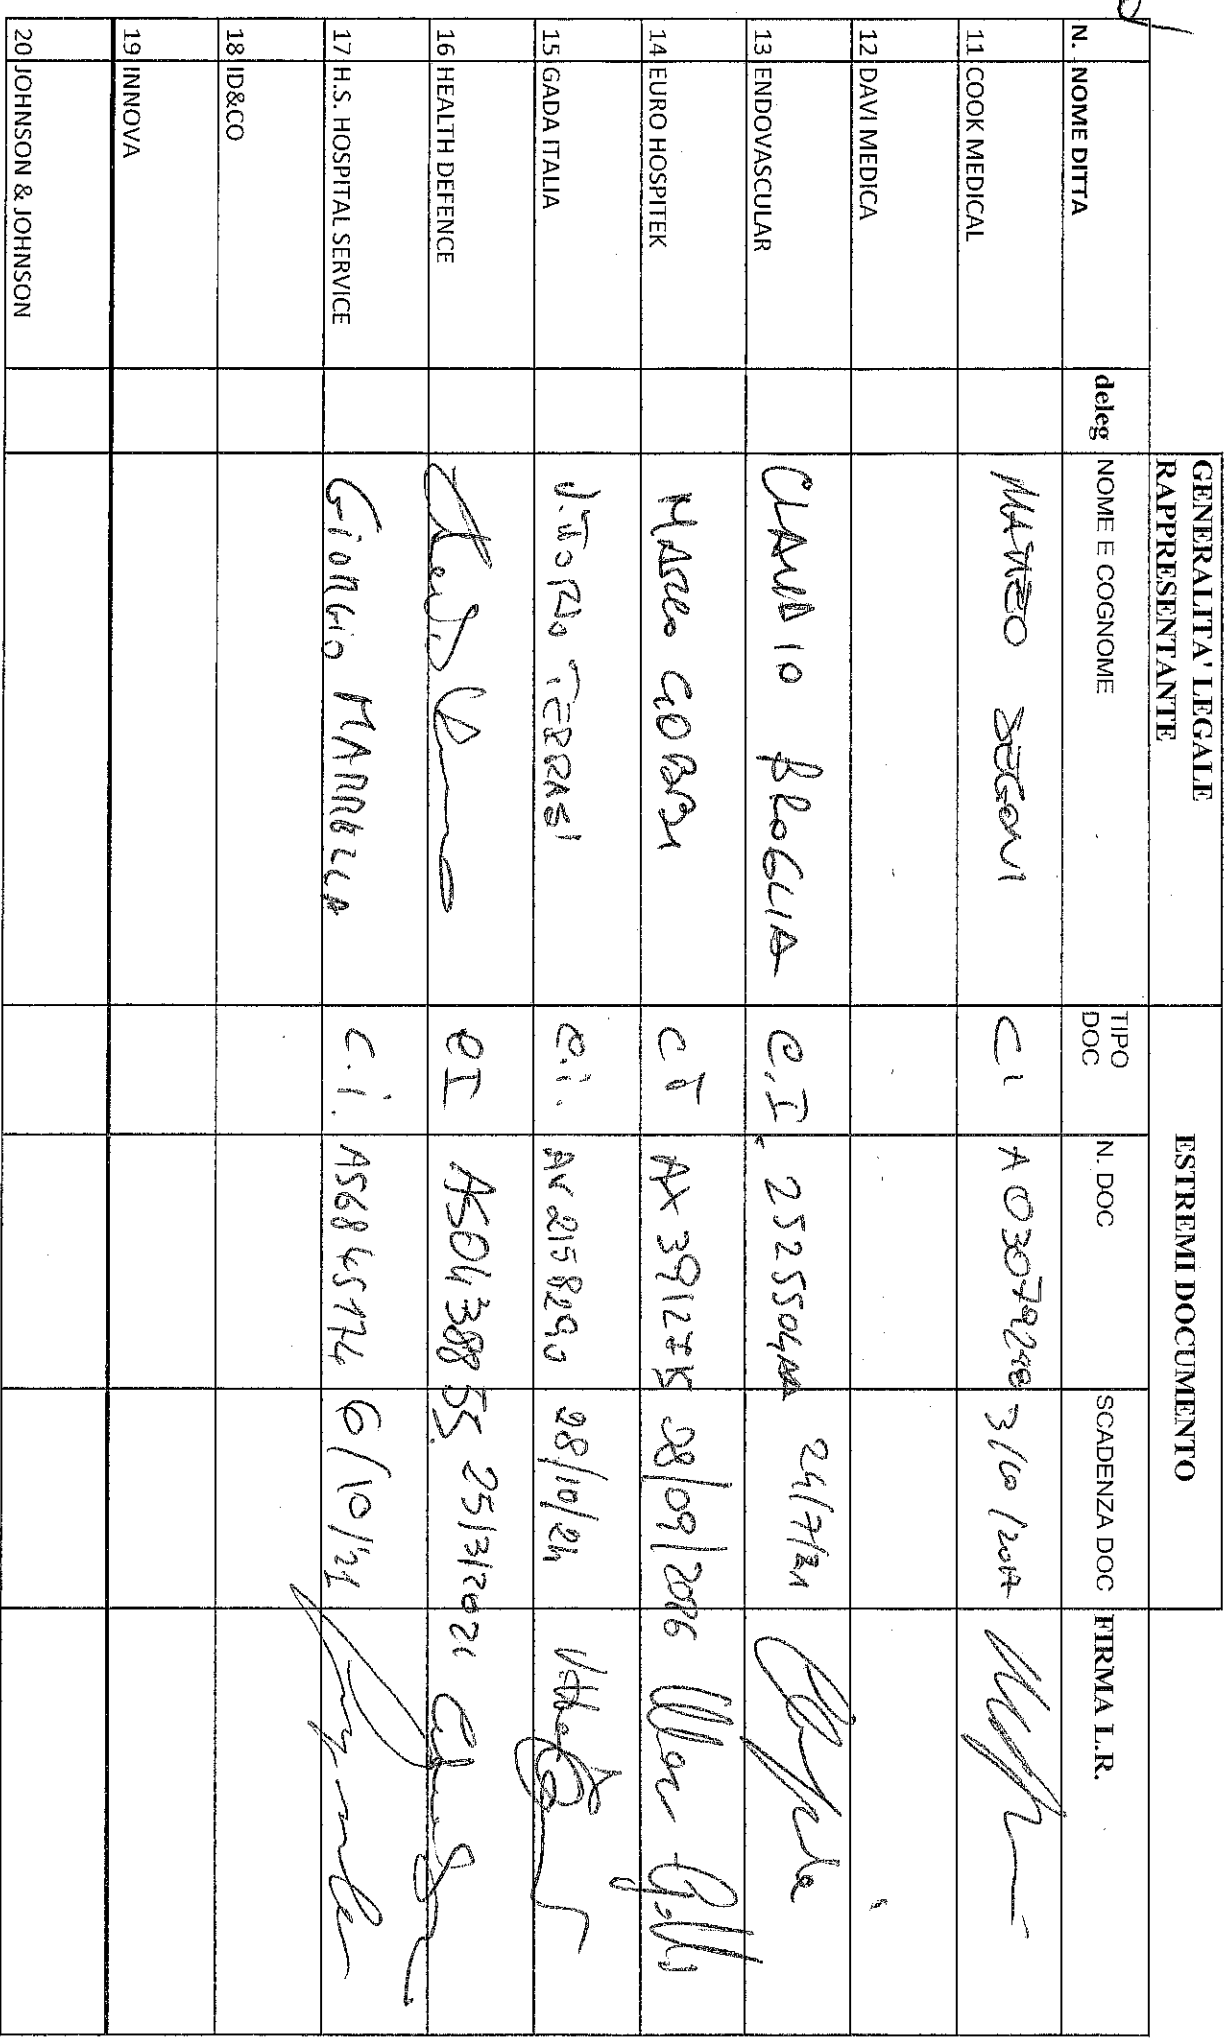 GENERALITA' LEGALE RAPPRESENTANTE ESTREMI DOCUMENTO
N. NOME DITTA deleg NOME E COGNOME TIPO DOC N. DOC SCADENZA DOC FIRMA L.R.
11 COOK MEDICAL MATTEO SEGONI CI 3/10/2017
12 DAVI MEDICA
13 ENDOVASCULAR CLAUDIO BROGLIA C.I 2525504AA 24/7/21
14 EURO HOSPITEK MARCO GOBBI CI 08/09/2026
15 GADA ITALIA VITTORIO TERRASI C.i. AV2158290 28/10/24
16 HEALTH DEFENCE CI AS04388 55 25/3/2021
17 H.S. HOSPITAL SERVICE GIORGIO MARABELLA C.i. AS6845174 6/10/21
18 ID&CO
19 INNOVA
20 JOHNSON & JOHNSON